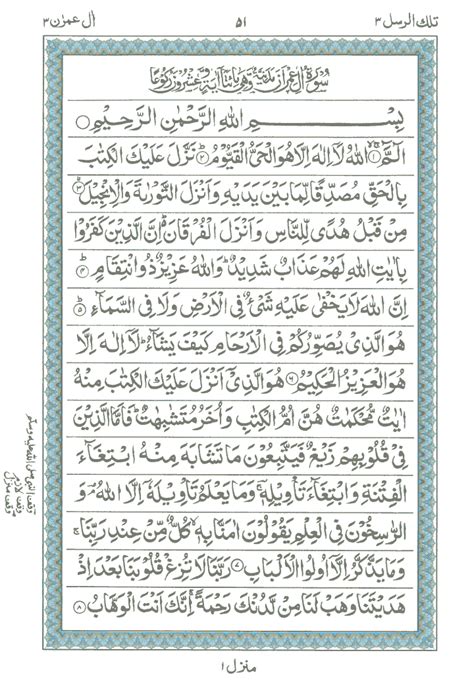 تلك الرسل ٣
٥١
آل عمرٰن ٣
سُوْرَةُ اٰلِ عِمْرٰنَ مَدَنِيَّةٌ وَّهِيَ مِائَتَا اٰيَةٍ وَّعِشْرُوْنَ رُكُوْعًا
بِسْمِ اللّٰهِ الرَّحْمٰنِ الرَّحِيْمِ ○
الٓمّٓ ۙ﴿١﴾ اللّٰهُ لَاۤ اِلٰهَ اِلَّا هُوَ الْحَيُّ الْقَيُّوْمُ ؕ﴿٢﴾ نَزَّلَ عَلَيْكَ الْكِتٰبَ
بِالْحَقِّ مُصَدِّقًا لِّمَا بَيْنَ يَدَيْهِ وَاَنْزَلَ التَّوْرٰىةَ وَالْاِنْجِيْلَ ۙ﴿٣﴾
مِنْ قَبْلُ هُدًى لِّلنَّاسِ وَاَنْزَلَ الْفُرْقَانَ ؕ اِنَّ الَّذِيْنَ كَفَرُوْا
بِاٰيٰتِ اللّٰهِ لَهُمْ عَذَابٌ شَدِيْدٌ ؕ وَاللّٰهُ عَزِيْزٌ ذُو انْتِقَامٍ ﴿٤﴾
اِنَّ اللّٰهَ لَا يَخْفٰى عَلَيْهِ شَيْءٌ فِي الْاَرْضِ وَلَا فِي السَّمَآءِ ؕ﴿٥﴾
هُوَ الَّذِيْ يُصَوِّرُكُمْ فِي الْاَرْحَامِ كَيْفَ يَشَآءُ ؕ لَاۤ اِلٰهَ اِلَّا
هُوَ الْعَزِيْزُ الْحَكِيْمُ ﴿٦﴾ هُوَ الَّذِيْۤ اَنْزَلَ عَلَيْكَ الْكِتٰبَ مِنْهُ
اٰيٰتٌ مُّحْكَمٰتٌ هُنَّ اُمُّ الْكِتٰبِ وَاُخَرُ مُتَشٰبِهٰتٌ ؕ فَاَمَّا الَّذِيْنَ
فِيْ قُلُوْبِهِمْ زَيْغٌ فَيَتَّبِعُوْنَ مَا تَشَابَهَ مِنْهُ ابْتِغَآءَ
الْفِتْنَةِ وَابْتِغَآءَ تَاْوِيْلِهٖ ۚ وَمَا يَعْلَمُ تَاْوِيْلَهٗۤ اِلَّا اللّٰهُ ۘ وَ
الرّٰسِخُوْنَ فِي الْعِلْمِ يَقُوْلُوْنَ اٰمَنَّا بِهٖ ۙ كُلٌّ مِّنْ عِنْدِ رَبِّنَا ۚ
وَمَا يَذَّكَّرُ اِلَّاۤ اُولُوا الْاَلْبَابِ ﴿٧﴾ رَبَّنَا لَا تُزِغْ قُلُوْبَنَا بَعْدَ اِذْ
هَدَيْتَنَا وَهَبْ لَنَا مِنْ لَّدُنْكَ رَحْمَةً ۚ اِنَّكَ اَنْتَ الْوَهَّابُ ﴿٨﴾
وقف النبي صلى الله عليه وسلم
وقف لازم
وقف منزل
منزل ١